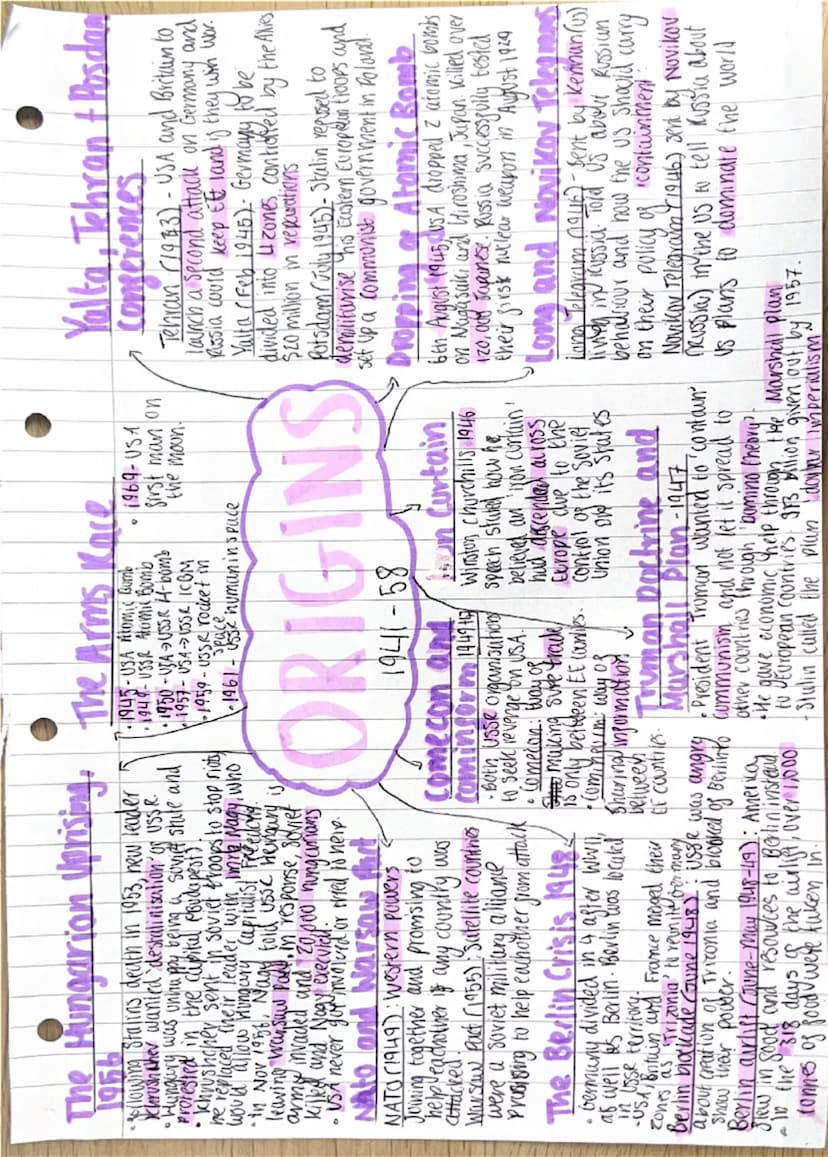 The Hungarian Uprising,
1956
• Following Stalins death in 1953, new leader
Khrushchev wanted 'destalinisation' of USSR.
• Hungary was unhappy being a soviet state and
protested in the capital (Budapest)
• Khrushchev sent in soviet troops to stop riots
he replaced their leader with Imre Nagy, who
would allow Hungary capitalist freedoms.
• In Nov 1956, Nagy told USSR Hungary is
leaving Warsaw Pact. In response, soviet
army invaded and 20,000 hungarians
killed and Nagy executed.
• USA never got involved or tried to help.
NATO and Warsaw Pact
NATO (1949): Western powers
joining together and promising to
help eachother if any country was
attacked.
Warsaw Pact (1955): Satellite countries
were a soviet military alliance
promising to help eachother from attack
The Berlin Crisis 1948
• Germany divided in 4 after WWII,
as well as Berlin. Berlin was located
in USSR territory.
- USA, Britain and France merged their
zones as 'Trizonia' to reunite Germany
Berlin blockade (June 1948): USSR was angry
about creation of Trizonia and blocked of Berlin to
show their power.
Berlin airlift (June-May 1948-49): America
flew in food and resources to Berlin instead
• In the 318 days of the airlift, over 1,000
tonnes of food were taken in.
The Arms Race
• 1945 - USA Atomic Bomb
• 1949 - USSR Atomic Bomb
• 1950 - USA → USSR H-bomb
• 1957 - USA → USSR ICBM
• 1959 - USSR rocket in
space
• 1961 - USSR human in space
• 1969 - USA
first man on
the moon.
ORIGINS
1941-58
Comecon and
Cominform 1949/47
• Both USSR organisations
to seek revenge on USA.
• Comecon: way of
making sure trade
is only between EE countries.
• Cominform: way of
sharing information
between
EE countries.
Iron Curtain
Winston Churchills 1946
speech stated how he
believed an 'iron curtain'
had descended across
Europe due to the
control of the Soviet
Union and its States
Truman Doctrine and
Marshall Plan - 1947
• President Truman wanted to 'contain'
communism and not let it spread to
other countries through 'domino theory'.
• He gave economic help through the Marshall Plan
to European countries. $13 billion given out by 1957.
- Stalin called the plan 'dollar imperialism'
Yalta, Tehran + Posdam
Conferences
Tehran (1943) - USA and Britain to
launch a second attack on Germany and
Russia could keep EE land if they win war.
Yalta (Feb 1945) - Germany to be
divided into 4 zones controlled by the Allies
$20 million in reparations
Potsdam (July 1945) - Stalin refused to
demilitarise his Eastern European troops and
set up a communist government in Poland.
Dropping of Atomic Bomb
6th August 1945, USA dropped 2 atomic bombs
on Nagasaki and Hiroshima, Japan. Killed over
120,000 Japanese. Russia successfully tested
their first nuclear weapon in August 1949
Long and Novikov Telegrams
Long Telegram (1946) - Sent by Kennan (US)
living in Russia. Told US about Russian
behaviour and how the US should carry
on their policy of 'containment'.
Novikov Telegram (1946) sent by Novikov
(Russia) in the US to tell Russia about
US plans to dominate the world